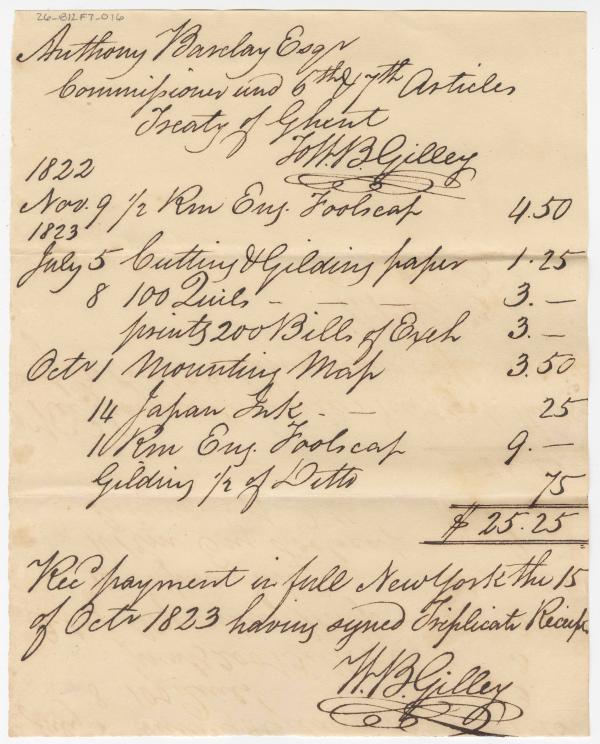 26-B12F7-016
Anthony Barclay Esqr
Commissioner und 6th & 7th Articles
Treaty of Ghent
To W. B. Gilley
1822
Nov. 9 1/2 Rm Eng. Foolscap 4.50
1823
July 5 Cutting & Gilding paper 1.25
8 100 Quils - - - 3. —
prints 200 Bills of Exch 3. —
Octr 1 Mounting Map 3.50
14 Japan Ink - — 25
1 Rm Eng. Foolscap 9. —
Gilding 1/2 of Ditto 75
$ 25.25
Recd payment in full New York the 15
of Octr 1823 having syned Triplicate Receips
W. B. Gilley